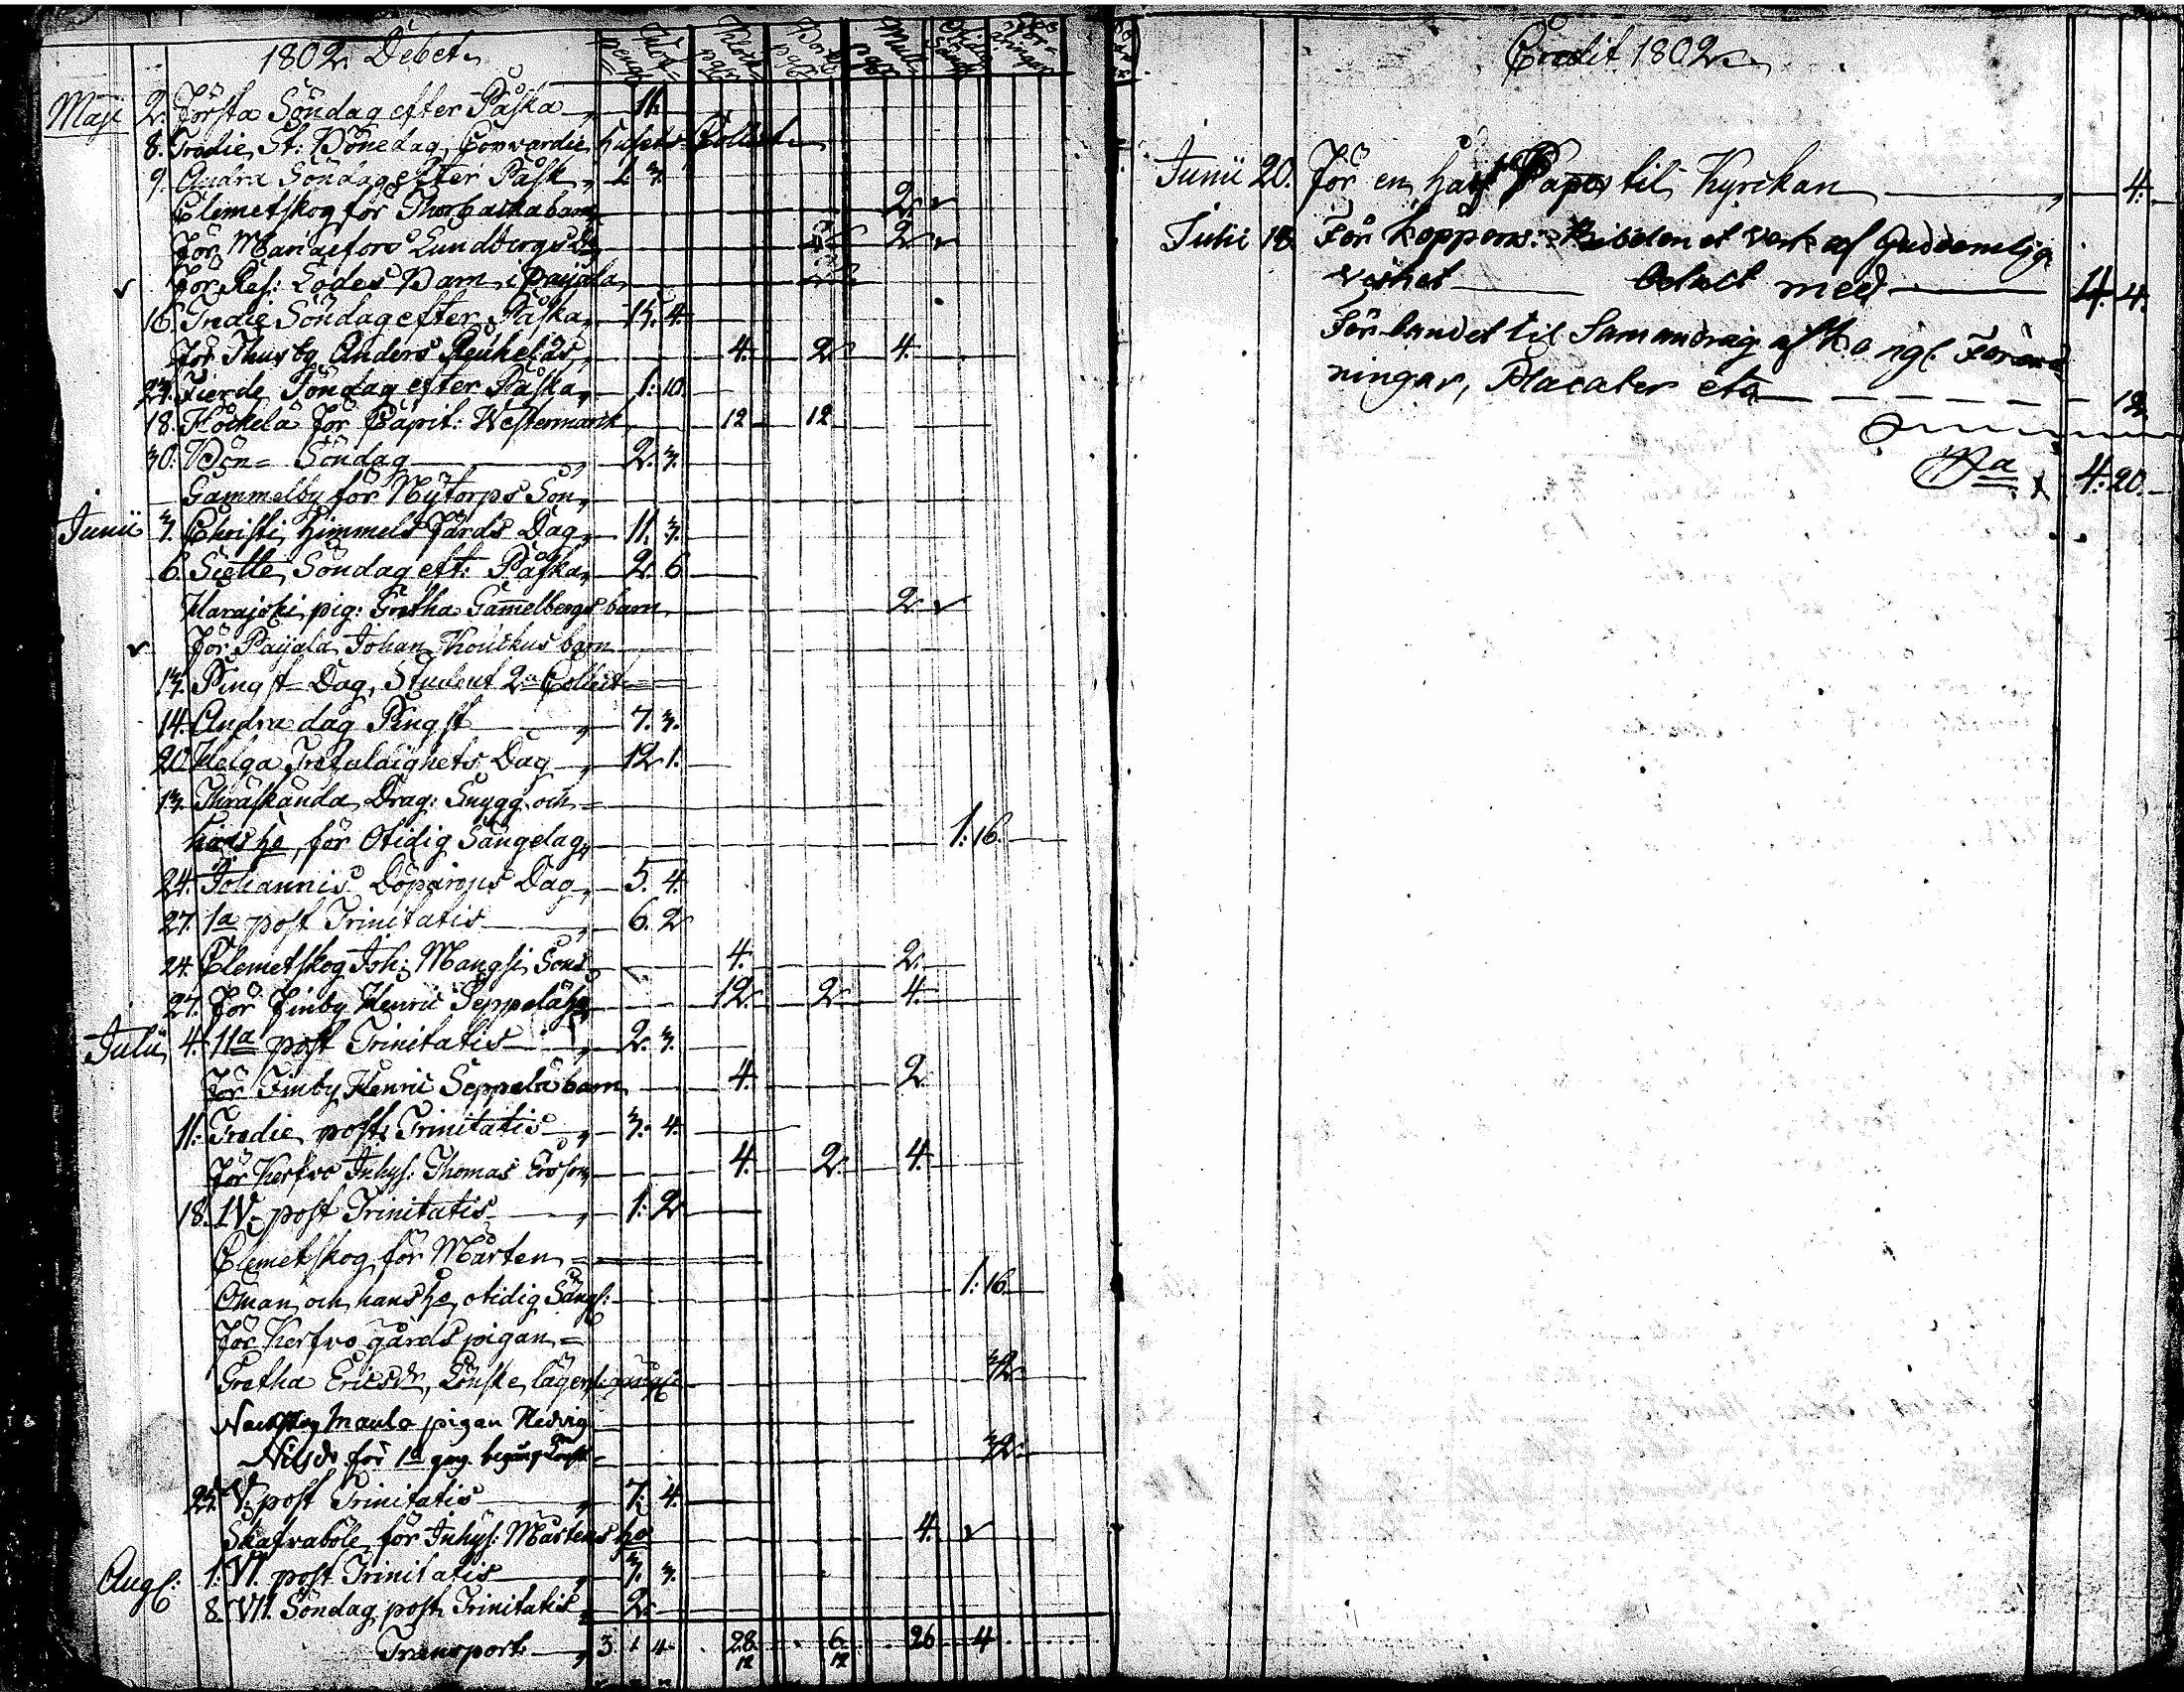 1802. Debet
Håf= peng:
Klock pgr
Bår pgr
Mull pgr
Otidig Säng
Maji 2. Första Söndag efter Påska 16.
8. Tredie St: Bönedag, Convardie Husets Collect
9. Andra Söndag efter Påsk 1. 3.
Clemetskog för barn 2
För Mariaefors Lundbergs 2
För Ref: Lodes Barn i Paijala
16. Tredie Söndag efter Påska 15. 4.
för Thusby Anders 4. 2 4.
23. Fierde Söndag efter Påska 1. 10.
18. Höckela för Capit: Westermarck 12 12
30. Bön= Söndag 2. 3.
Gammelby för Nytorps Son
Junii 3. Christi Himmels Färds Dag 11. 3.
6. Siette Söndag eft: Påska 2. 6
Harajoki pig: Gretha Gam̄elbergs barn 2
för Paijala Johan Kouckus barn
13. Pingst Dag, Student 2 Collect
14. Andra dag Pingst 7. 3.
20. Helga Trefaldighets Dag 12 1.
13. Thräskända Drag: Snygg och =
hans ho, för Otidig Sängelag 1: 16.
24. Johannis Döparens Dag 5. 4.
27. 1a post Trinitatis 6. 2
24. Clemetskog Joh: Mangsi Sons 4. 2.
27. För Finby Henric Seppelä 12. 2 4.
Julii 4. 11a post Trinitatis 2. 3.
För Finby Henric Seppelä barn 4. 2
11. Tredie post Trinitatis 3. 4.
För Kerfvo Inhys: Thomas Ersson 4. 2. 4.
18. IV. post Trinitatis 1. 2
Clemetskog för Mårten =
Öman och hans ho, otidig Sängl: 1: 16.
För Kerfvo gårds pigan =
Gretha Ericsdr, Lönske läger 32.
Maula pigan Hedvig
Nilsdr för 1a gng. begång 32.
25. V. post Trinitatis 7. 4.
Skafvaböle för Inhys: Mårtens ho 4.
Aug: 1. VI. post Trinitatis 3. 3.
8. VII. Söndag post Trinitatis 2.
Transport 3 1 4 28 12 6 12 26 4
Credit 1802
Junii 20. För en half Papper til Kyrckan 4.
Julii 18. För Köppens: Bibelen et verk af Gudomelig
vishet betalt med 4. 4.
För bandet til Sammandrag af Kongl. Förord
ningar, Placater etc 12
4: 20.